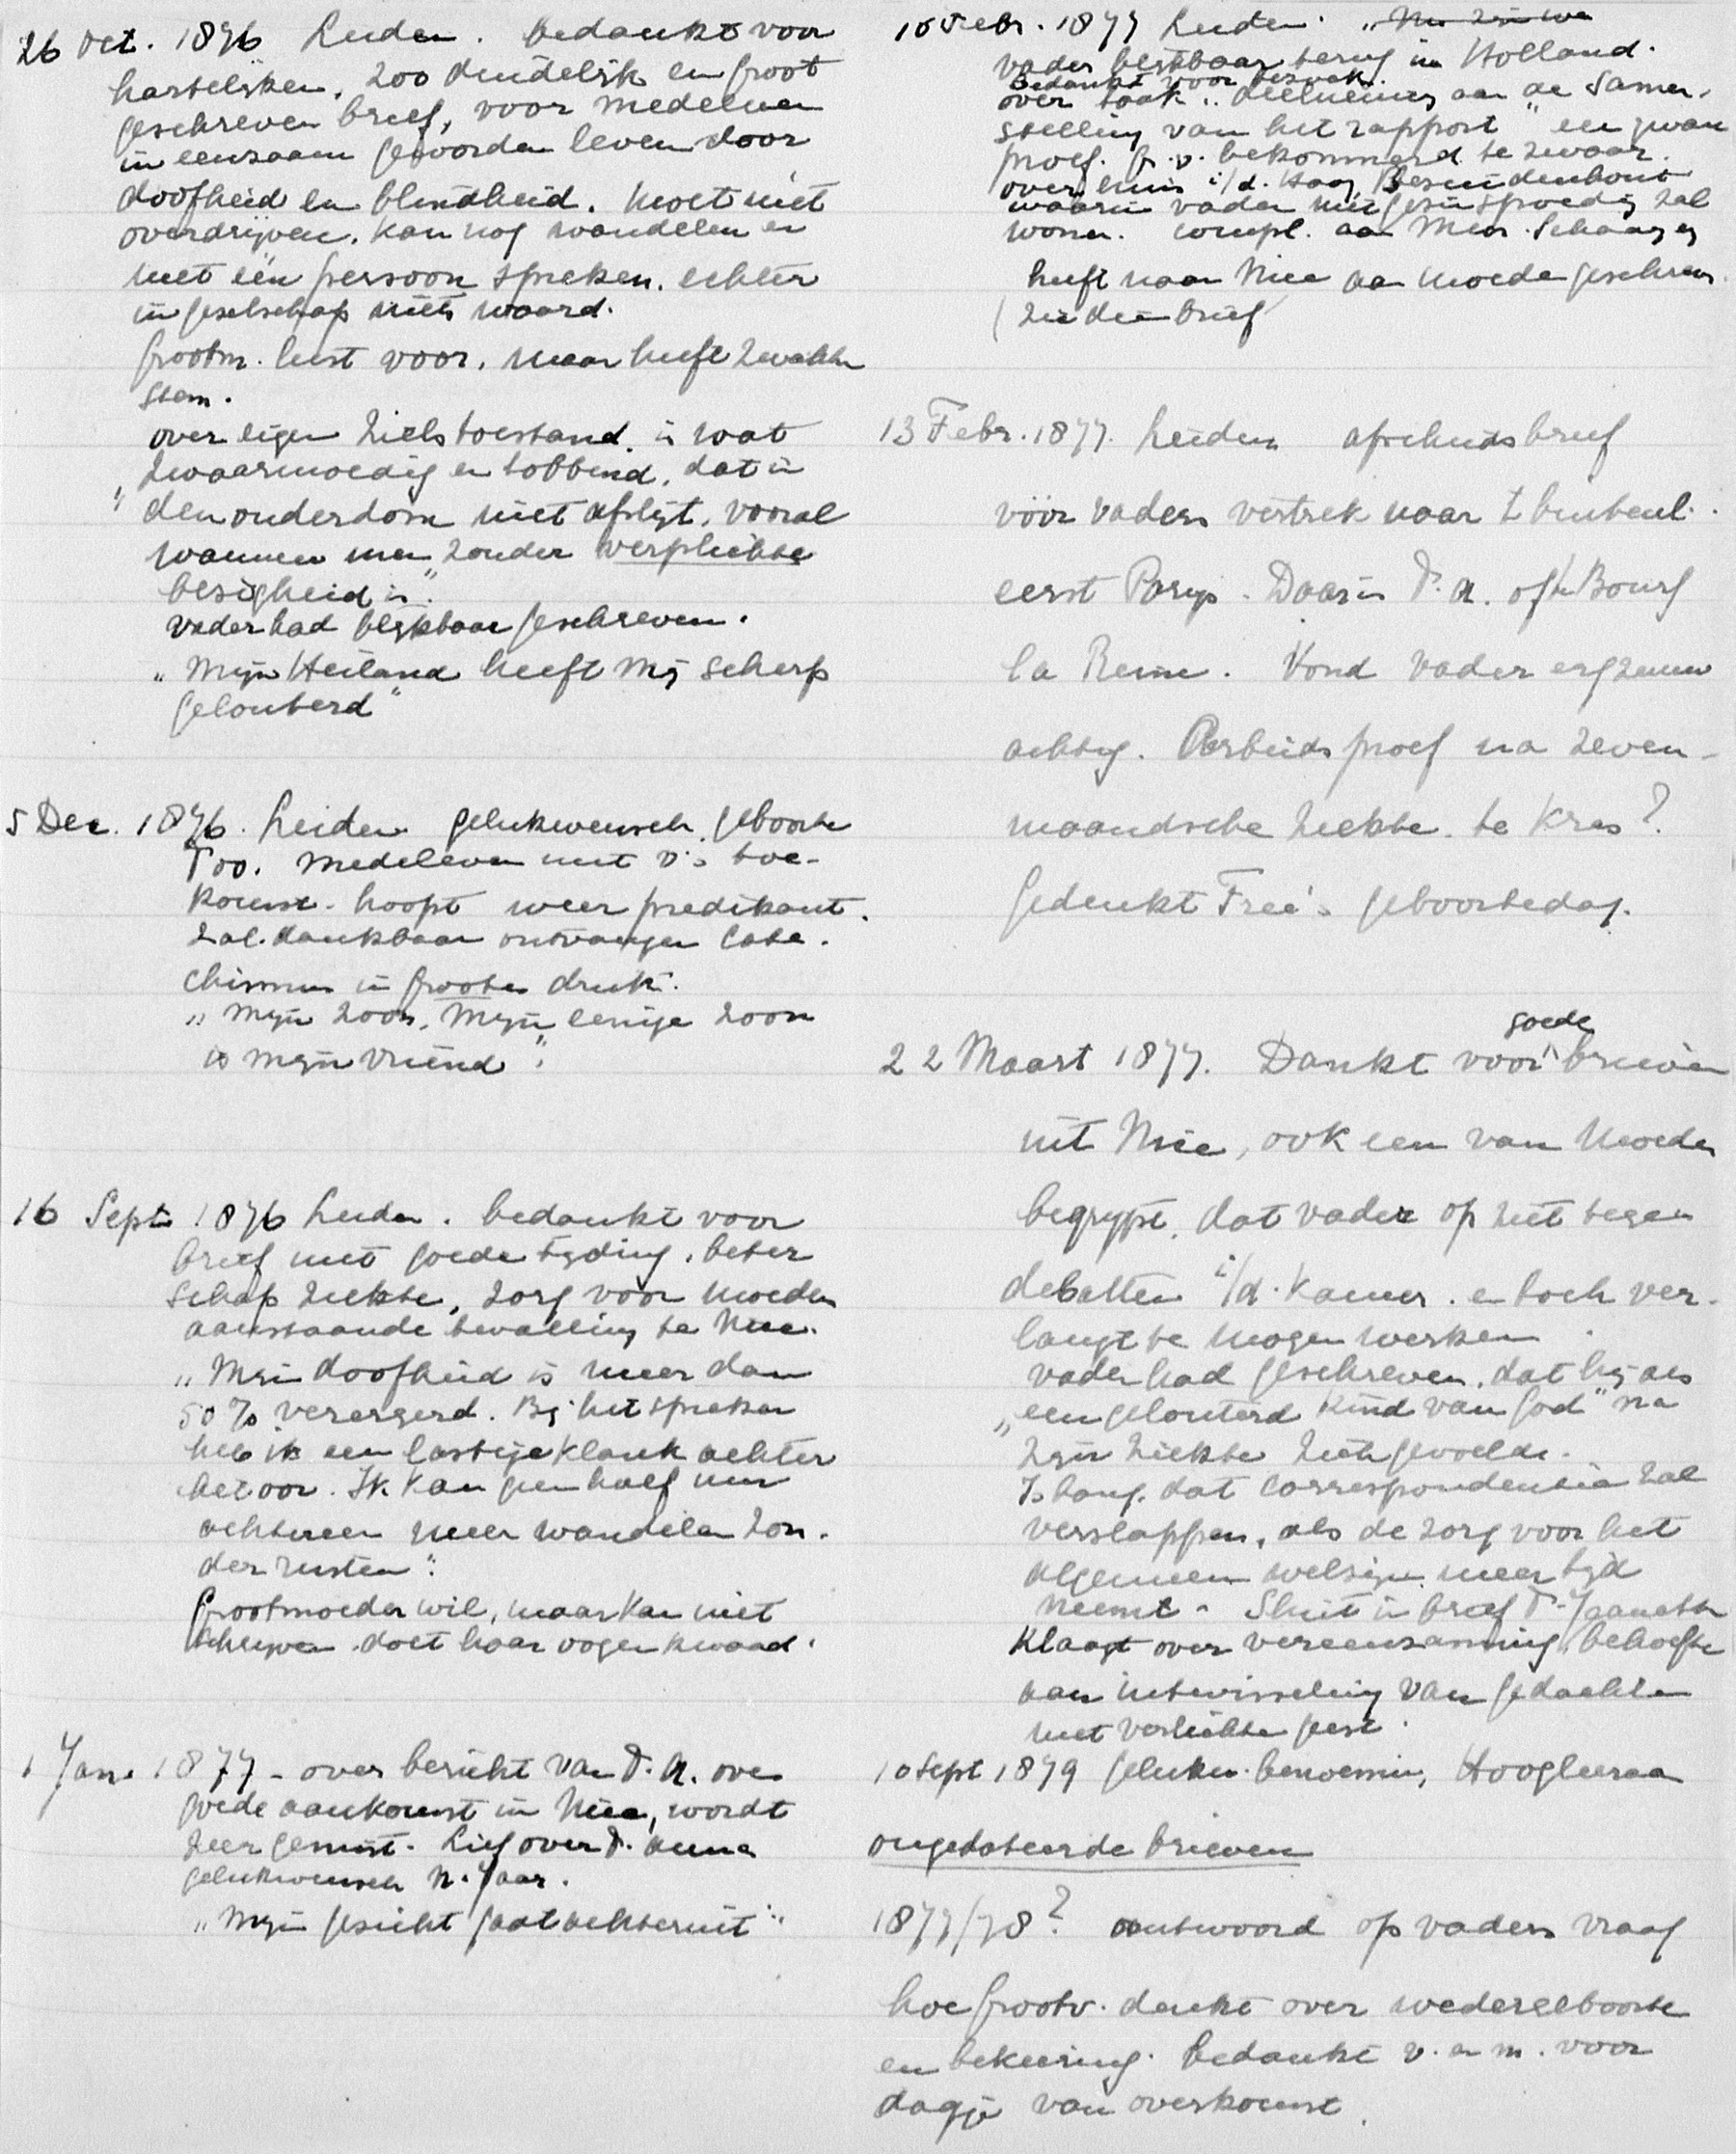 26 Oct. 1876 Leiden. bedankt voor
hartelijken, zoo duidelijk en groot
geschreven brief, voor medeleven
in eenzaam geworden leven door
doofheid en blindheid. Moet niet
overdrijven, kan nog wandelen en
met één persoon spreken. echter
in geselschap niets waard.
Grootm. leest voor, maar heeft zwakke
stem.
over eigen zielstoestand is wat
zwaarmoedig en tobbend, dat in
„ den ouderdom niet afslijt, vooral
wanneer men zonder verplichte
besigheid is".
vader had blijkbaar geschreven.
„Mijn Heiland heeft mij scherp
gelouterd"
5 Dec. 1876. Leiden gelukwensch geboorte
Too. Medeleven met v's toe-
komst - hoopt weer predikant.
zal dankbaar ontvangen Cate-
chismus in grooten druk.
„Mijn zoon, Mijn eenige zoon
is mijn vriend".
16 Sept 1876 Leiden. bedankt voor
brief met goede tijding, beter
schap ziekte, zorg voor moeder
aanstaande bevalling te Nice.
„Mijn doofheid is meer dan
50% verergerd. Bij het spreken
heb ik een lastige klank achter
het oor. Ik kan geen half uur
achtereen meer wandelen zon-
der rusten".
Grootmoeder wil, maar kan niet
schrijven. doet haar oogen kwaad.
1 Jan. 1877 - over bericht van T. A. over
goede aankomst in Nice, wordt
zeer gemist. Lief over T. Anna
gelukwensch N. Jaar.
„Mijn gesicht gaat achteruit".
10 Febr. 1877 Leiden. „Nu zijn we
vader blijkbaar terug in Holland.
Bedankt voor bezoek.
over taak „deelneming aan de samen-
stelling van het rapport" een zware
proef. G. v. bekommerd te zwaar.
over huis i/d. Haag, Besuidenhout
waarin vader met gesin spoedig zal
wonen. compl. aan Mevr.
heeft naar Nice aan moeder geschreven
(zie dien brief)
13 Febr. 1877. Leiden afscheids brief
vóór vaders vertrek naar
eerst Parijs. Daar is T. A. of te Bourg
la Reine. Vond vader erg zenuw
achtig. Arbeids proef na zeven-
maandsche ziekte te kras?
Gedenkt Free's geboortedag.
22 Maart 1877. Dankt voor goede brieven
uit Nice, ook een van Moeder
begrijpt, dat vader op ziet tegen
debatten i/d. Kamer. en toch ver-
langt te mogen werken.
vader had geschreven, dat hij als
„een gelouterd kind van God" na
zijn ziekte zich gevoelde.
Is bang, dat correspondentie zal
verslappen, als de zorg voor het
algemeen welzijn meer tijd
neemt - Sluit in brief T. Jeanette
klaagt over vereenzaming, behoefte
aan uitwisseling van gedachten
met verlichte geest.
10 Sept 1879 gelukw. benoeming Hoogleeraar
ongedateerde brieven
1877/78? antwoord op vaders vraag
hoe Grootv. denkt over wedergeboorte
en bekeering. bedankt v. en m. voor
dagje van overkomst.